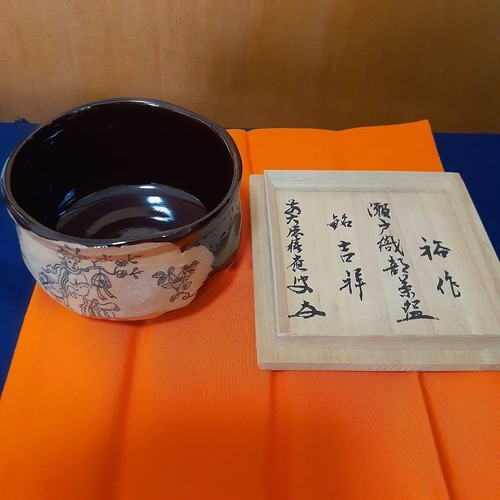 裕作
瀬戸織部茶盌
銘 吉祥
前大徳